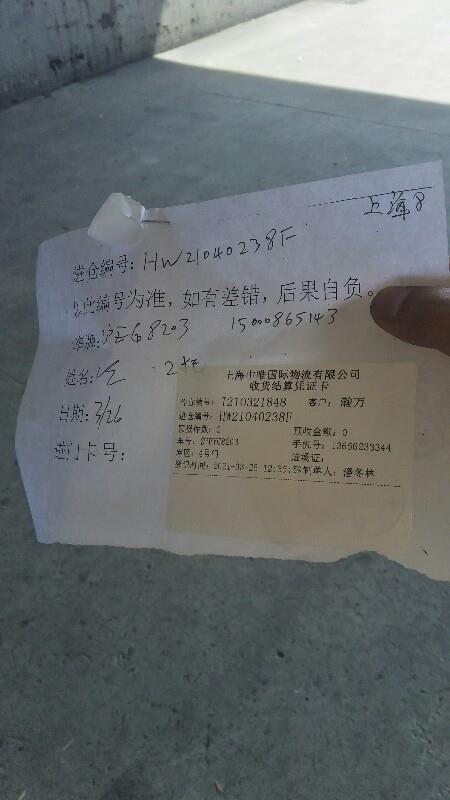 上海8
进仓编号: HW21040238F
以此编号为准，如有差错，后果自负。
车牌: 沪EG8203 15000865143
姓名:
日期: 3/26
进门卡号:
上海中唯国际物流有限公司
收货结算凭证卡
作业编号: 7210321848 客户: 瀚万
进仓编号: HW21040238F
预收金额: 0
手机号: 13656233344
库区: 4号门 进场证:
登记时间: 2021-03-26 12:35:59制单人: 潘冬林